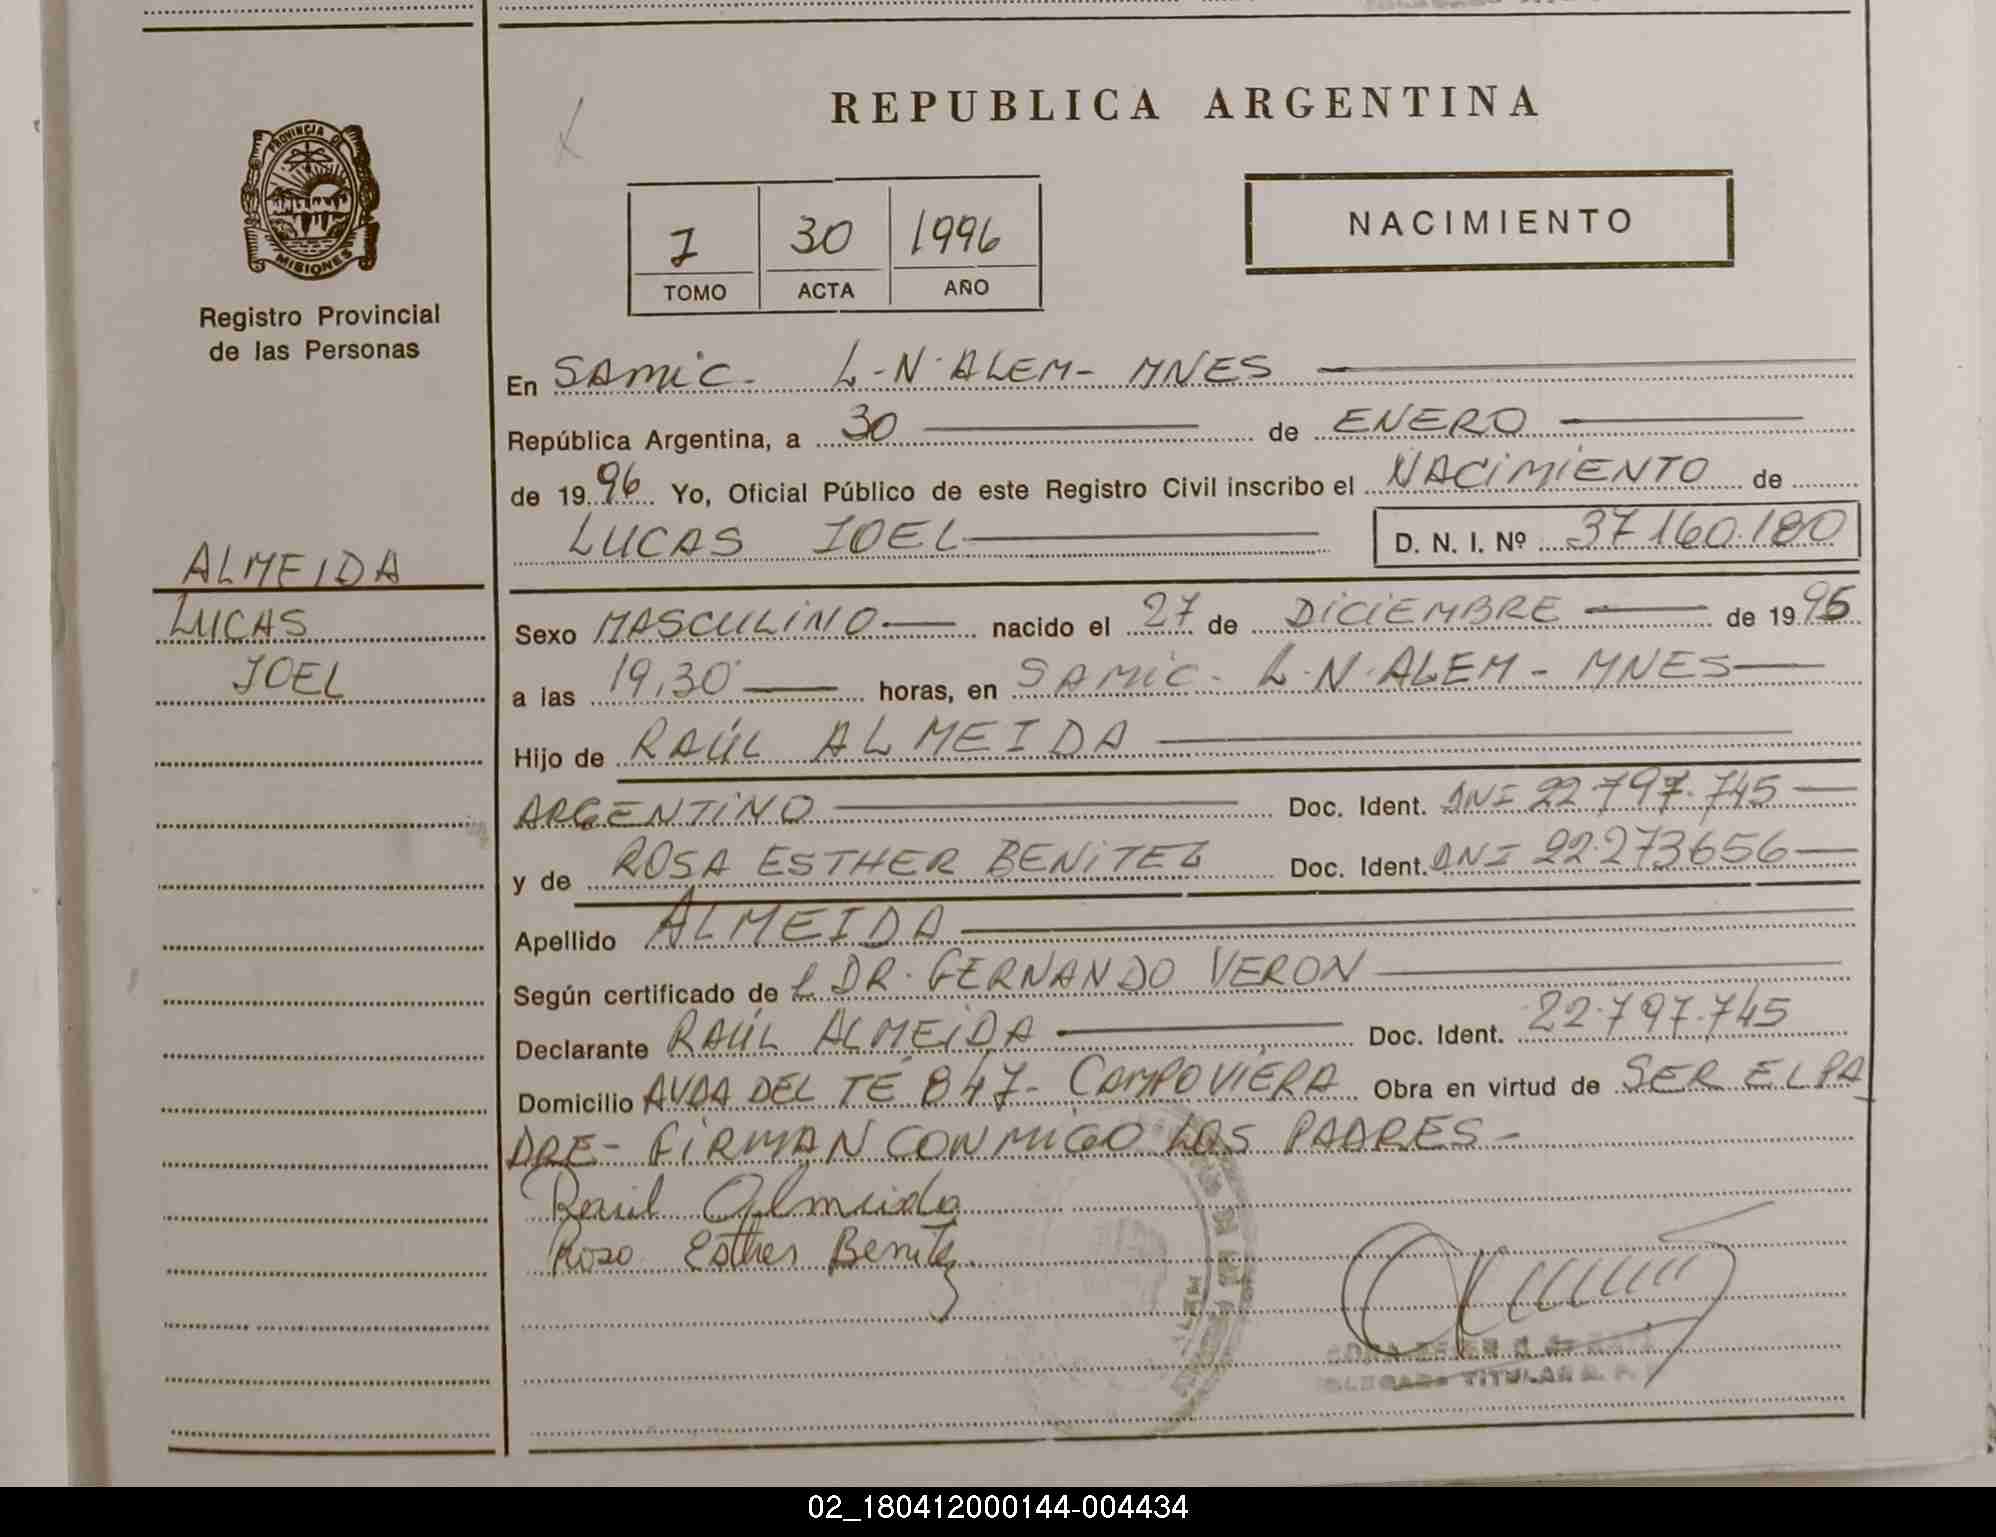 REPUBLICA ARGENTINA
PROVINCIA DE
MISIONES
Registro Provincial
de las Personas
ALMEIDA
LUCAS
JOEL
30 1996
TOMO ACTA AÑO
NACIMIENTO
En SAMIC - L-N-ALEM- MNES
República Argentina, a 30 de ENERO
de 1996 Yo, Oficial Público de este Registro Civil inscribo el NACIMIENTO de
LUCAS JOEL D. N. I. Nº 37160.180
Sexo MASCULINO nacido el 27 de DICIEMBRE de 1995
a las 19,30 horas, en SAMIC - L.N.ALEM - MNES
Hijo de RAÚL ALMEIDA
ARGENTINO Doc. Ident. DNI 22.797.745
y de ROSA ESTHER BENITEZ Doc. Ident. DNI 22273656
Apellido ALMEIDA
Según certificado de DR. FERNANDO VERON
Declarante RAÚL ALMEIDA Doc. Ident. 22.797.745
Domicilio AVDA DEL TE 847- CAMPO VIERA Obra en virtud de SER EL PA
DRE- FIRMAN CONMIGO LOS PADRES-
Raúl Almeida
Rosa Esther Benitez
TITULAR
02_180412000144-004434